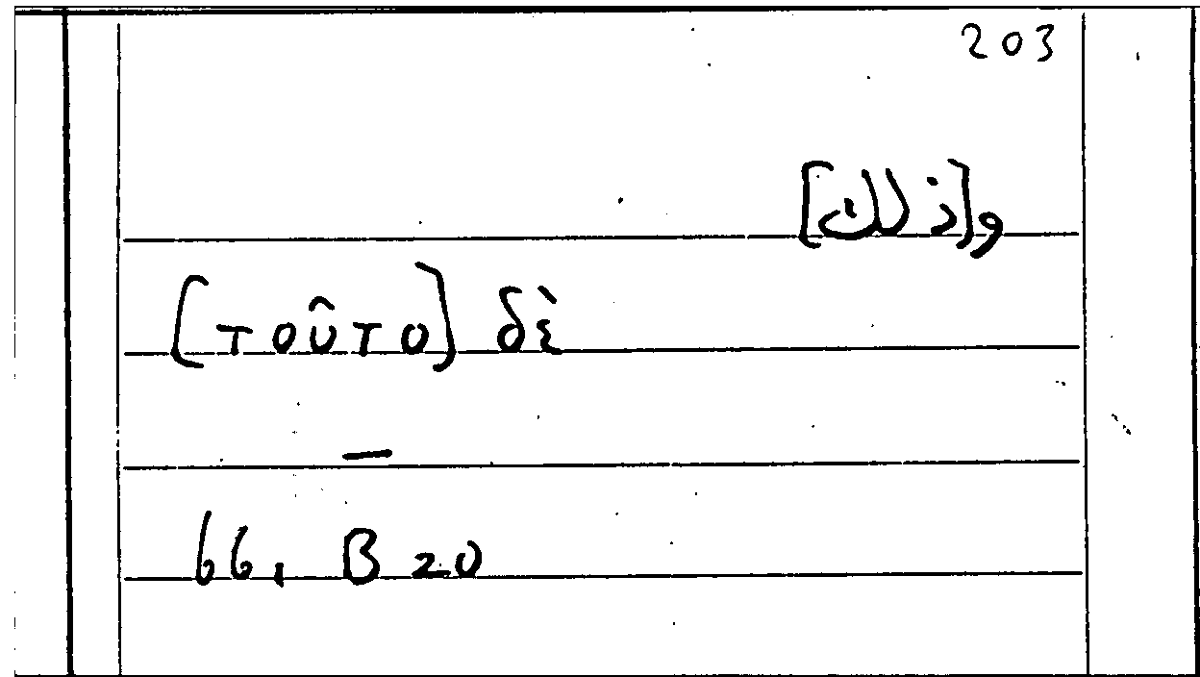 203
و[ذلك]
[τοῦτο] δὲ
—
66, B 20